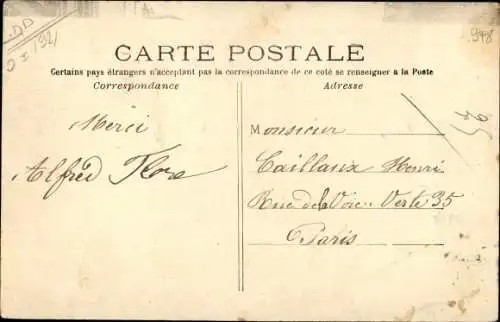 CARTE POSTALE
Certains pays étrangers n'acceptant pas la correspondance de ce coté se renseigner à la Poste
Correspondance
Adresse
Merci
Alfred Flore
Monsieur
Caillaux Henri
Rue de la Voie-Verte 35
Paris